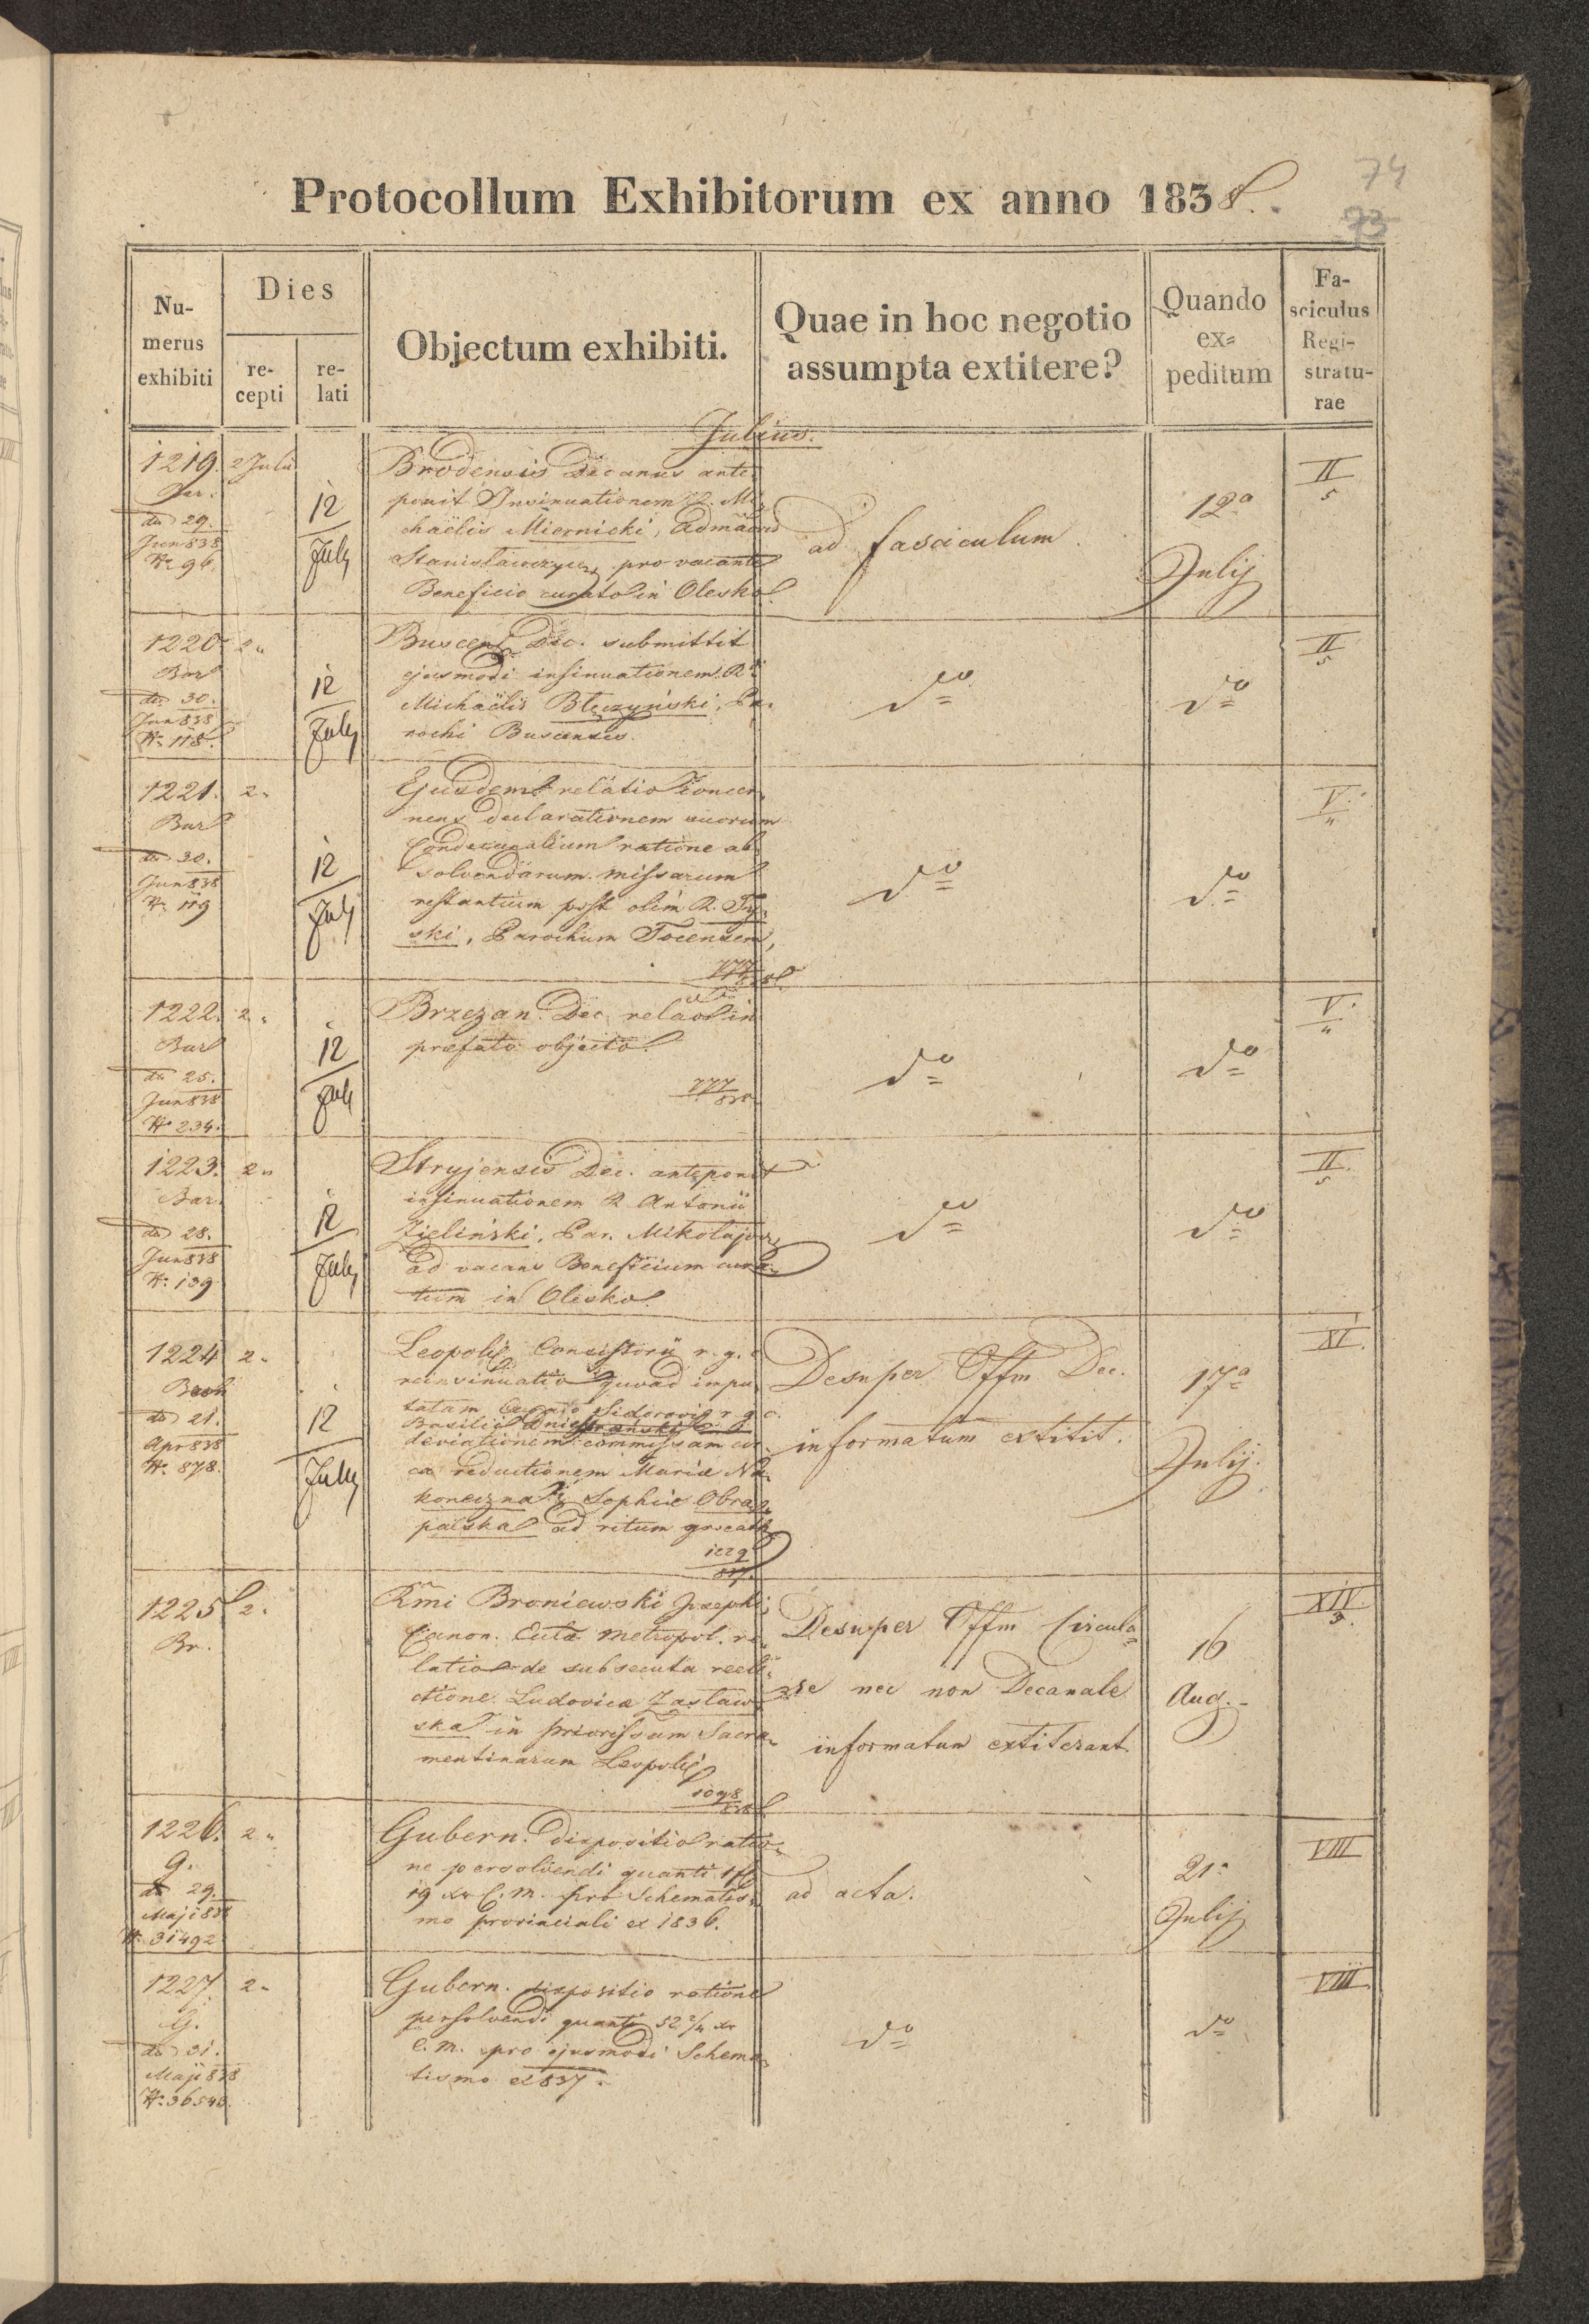 74
73
Protocollum Exhibitorum ex anno 1838.
Nu-
merus
exhibiti
Dies
re-
cepti
re-
lati
Objectum exhibiti.
Quae in hoc negotio
assumpta extitere?
Quando
ex-
peditum
Fa-
sciculus
Regi-
stratu-
rae
Julius.
1219. 2 Julii
Bar.
dto 29.
Jun 838
Nr 96.
12
July
Brodensis Decanus ante-
ponit Insinuationem R. Mi-
chaëlis Miernicki, Admäoris
Stanisławczyc. pro vacante
Beneficio curato in Olesko.
ad fasciculum.
12a
Julij
II
5
1220. 2 "
Bar
dto 30.
Jun 838
Nr. 118.
12
July
Buscens. Dec. submittit
ejusmodi insinuationem R.
Michaëlis Błęczyński, Pa-
rochi Buscensis.
do
do
II
5
1221. 2 "
Bar
dto 30.
Jun 838
Nr. 119
12
July
Ejusdem relatio concer-
nens declarationem suorum
Condecanalium ratione ab-
solvendarum missarum
restantium post olim R. Ty-
ski, Parochum Tocensem,
777
838
do
do
V.
"
1222. 2 "
Bar
dto 25.
Jun 838
Nr 234.
12
July
Brzezan. Dec. relatio in
præfato objecto.
777
838
do
do
V.
"
1223. 2 "
Bar.
dto 28.
Jun 838
Nr. 139
12
July
Stryjensis Dec. anteponit
insinuationem R. Antonii
Zieliński, Par. Mikołajov.
ad vacans Beneficium cura-
tum in Olesko.
do
do
II.
5
1224 2 "
dto 21.
Apr 838
Nr. 878.
12
July
Leopoli. Consistorii r. g. c.
reinsinuatio quoad impu-
tatam Sidorovio r. g. c.
Basilio
deviationem commissam cir-
ca reductionem Mariæ Na-
koneczna & Sophiæ Obra-
palska ad ritum græcath.
1229
837.
Desuper Offm Dec.
informatum extitit.
17a
Julij.
XI.
1225 2.
Br.
Rmi Broniewski Josephi,
Canon. Eccłæ metropol. re-
latio de subsecuta reele-
ctione Ludovicæ Zasław-
ska in priorissam Sacra-
mentinarum Leopoli.
1098
838
Desuper Offm Circula-
re nec non Decanale
informatum extiterant.
16
Aug.
XIV
9.
1226. 2 "
G.
dto 29.
Maji 838
Nr. 31492
Gubern. dispositio ratio-
ne persolvendi quanti 1 fl
19 xr C. M. pro Schematis-
mo provinciali ex 1836.
ad acta.
21a
Julij
VIII
1227. 2 "
G.
dto 31.
Maji 838
Nr. 36540.
Gubern. dispositio ratione
persolvendi quanti 52 2/4 xr
C. M. pro ejusmodi Schema-
tismo ex 837.
do
do
VIII